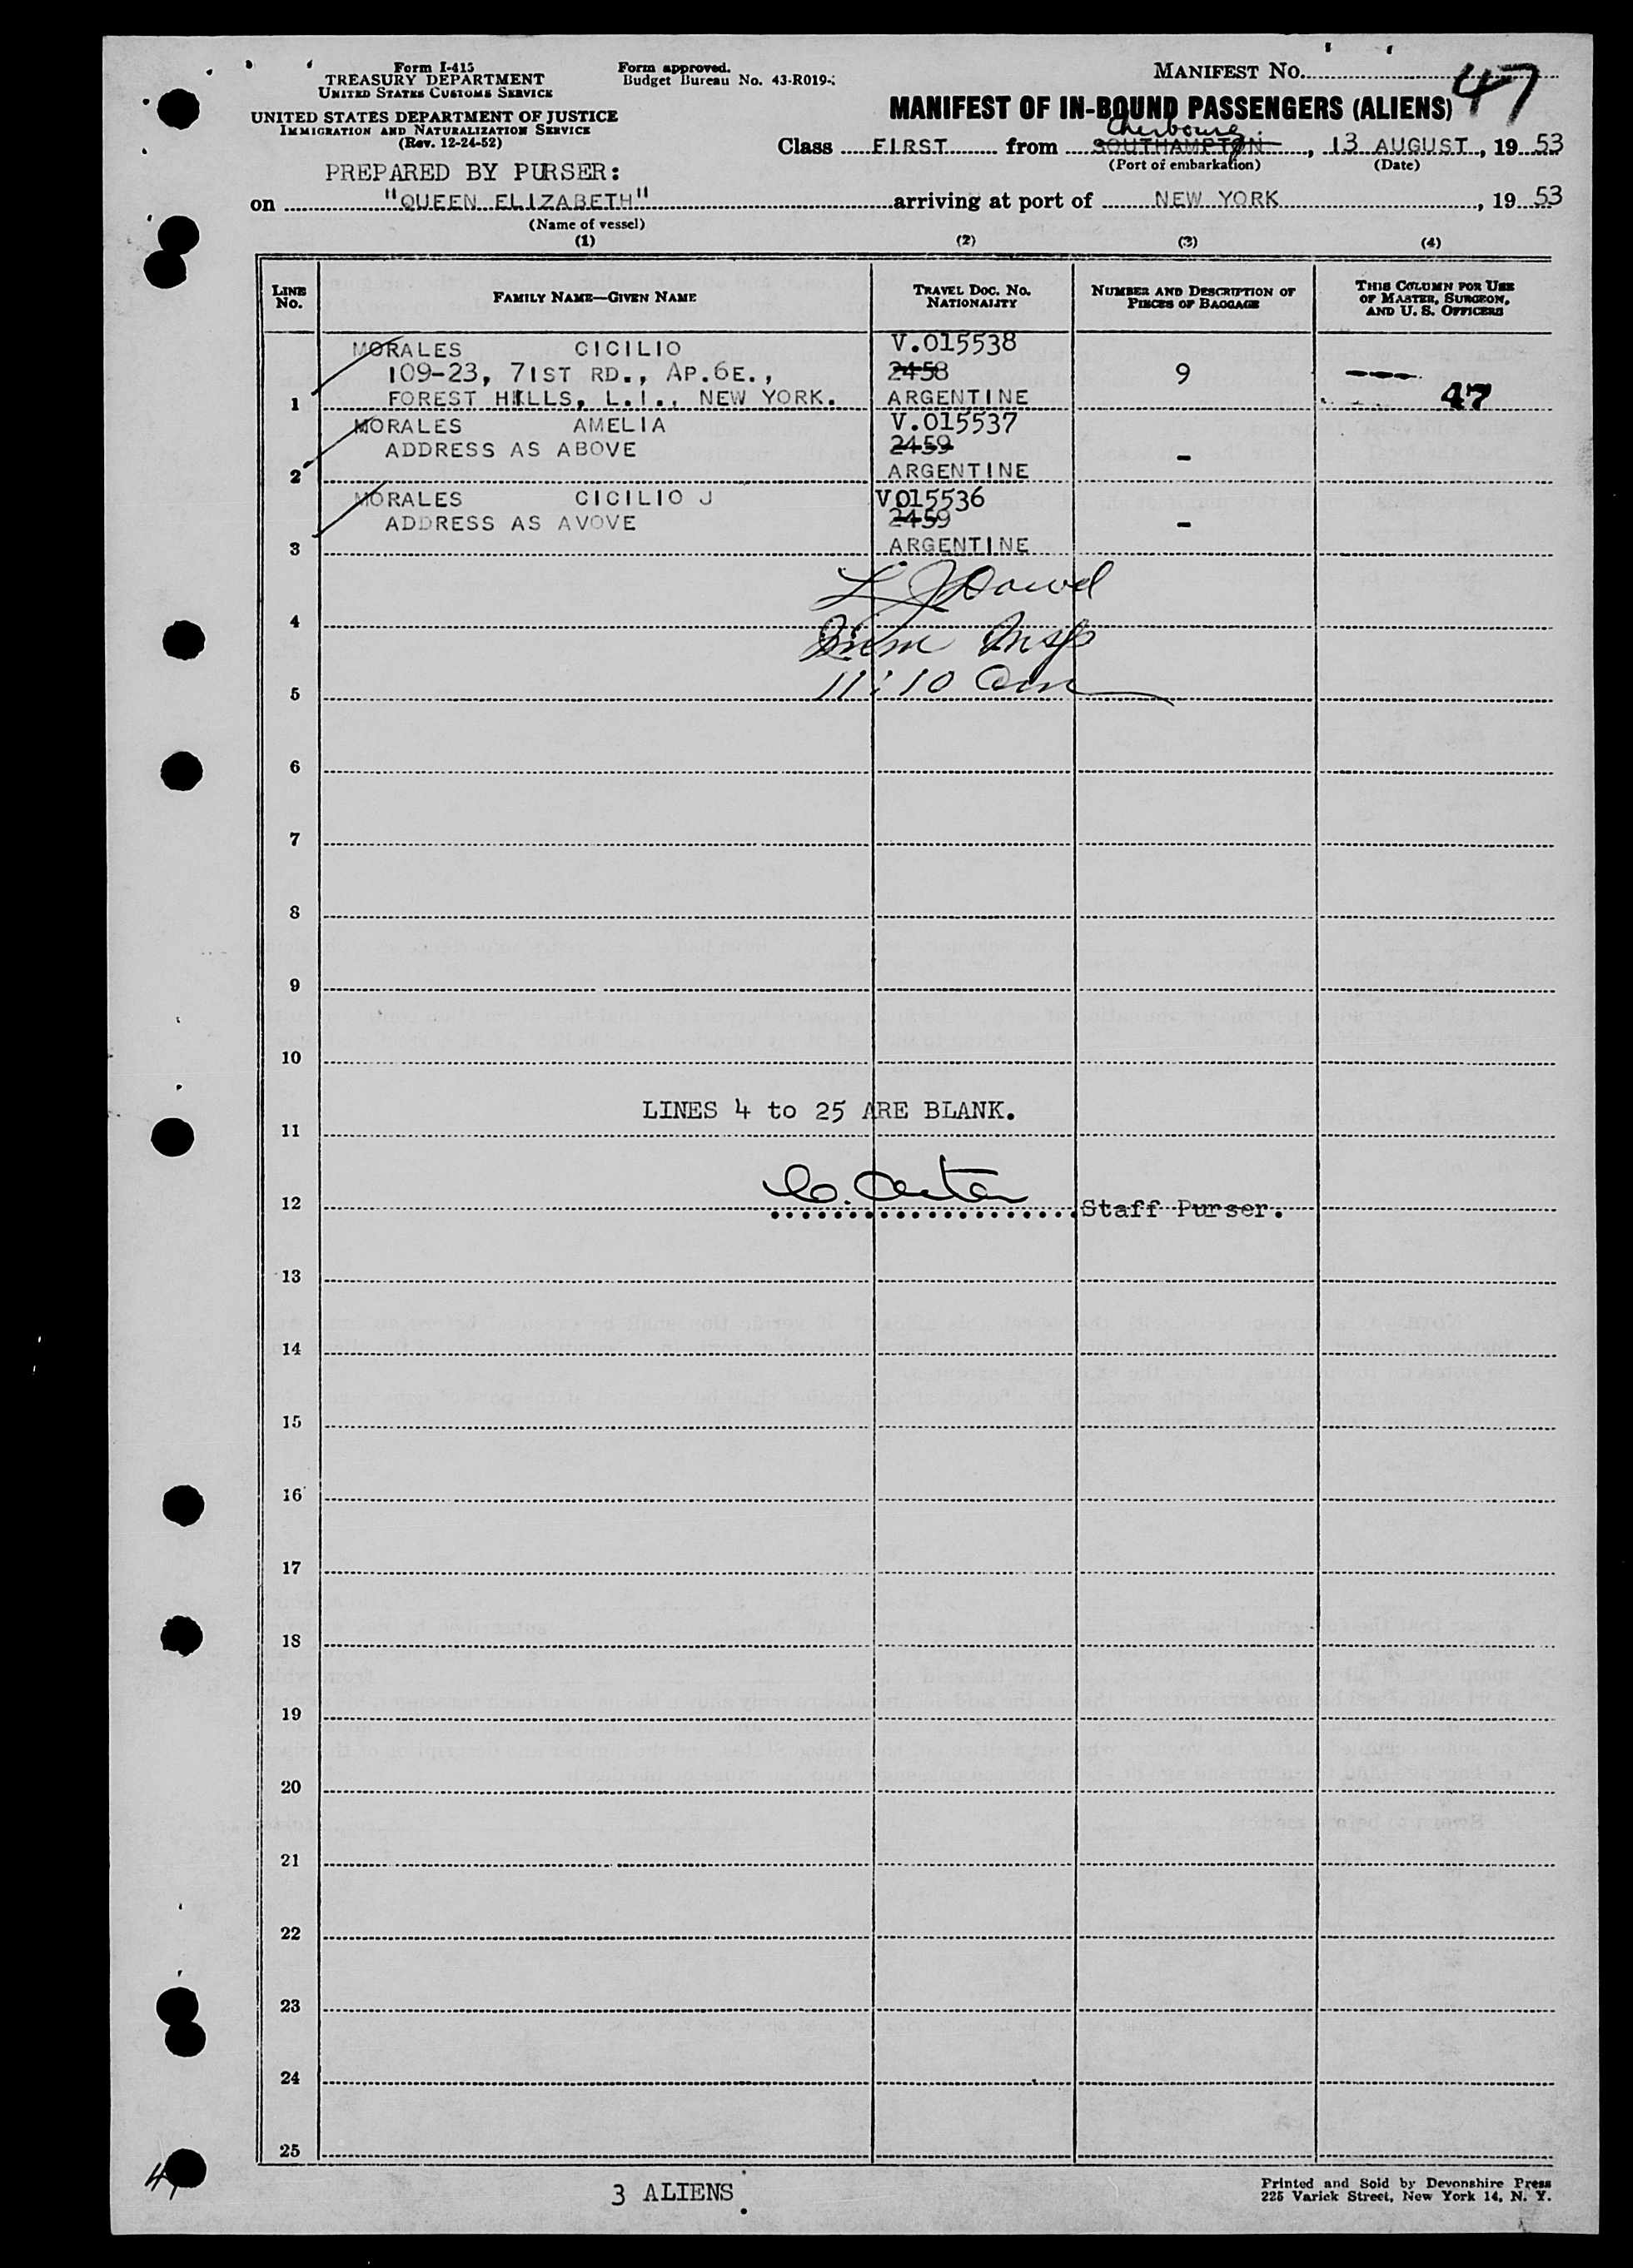 Form I-415
TREASURY DEPARTMENT
UNITED STATES CUSTOMS SERVICE
UNITED STATES DEPARTMENT OF JUSTICE
IMMIGRATION AND NATURALIZATION SERVICE
(Rev. 12-24-52)
Form approved.
Budget Bureau No. 43-R019-
MANIFEST No. 47
MANIFEST OF IN-BOUND PASSENGERS (ALIENS)
Cherbourg.
Class FIRST from SOUTHAMPTON, 13 AUGUST, 1953
(Port of embarkation) (Date)
PREPARED BY PURSER:
on "QUEEN ELIZABETH" arriving at port of NEW YORK, 1953
(Name of vessel)
(1) (2) (3) (4)
LINE No. FAMILY NAME—GIVEN NAME TRAVEL DOC. No. NATIONALITY NUMBER AND DESCRIPTION OF PIECES OF BAGGAGE THIS COLUMN FOR USE OF MASTER, SURGEON, AND U. S. OFFICERS
MORALES CICILIO V.015538
109-23, 71ST RD., AP.6E., 2458 9
1 FOREST HILLS, L.I., NEW YORK. ARGENTINE 47
MORALES AMELIA V.015537
ADDRESS AS ABOVE 2459 -
2 ARGENTINE
MORALES CICILIO J V015536
ADDRESS AS AVOVE 2459 -
3 ARGENTINE
L J Dowd
4
Imm Insp
5 11:10 am
6
7
8
9
10
LINES 4 to 25 ARE BLANK.
11
12 Staff Purser.
13
14
15
16
17
18
19
20
21
22
23
24
25
3 ALIENS.
Printed and Sold by Devonshire Press
225 Varick Street, New York 14, N. Y.